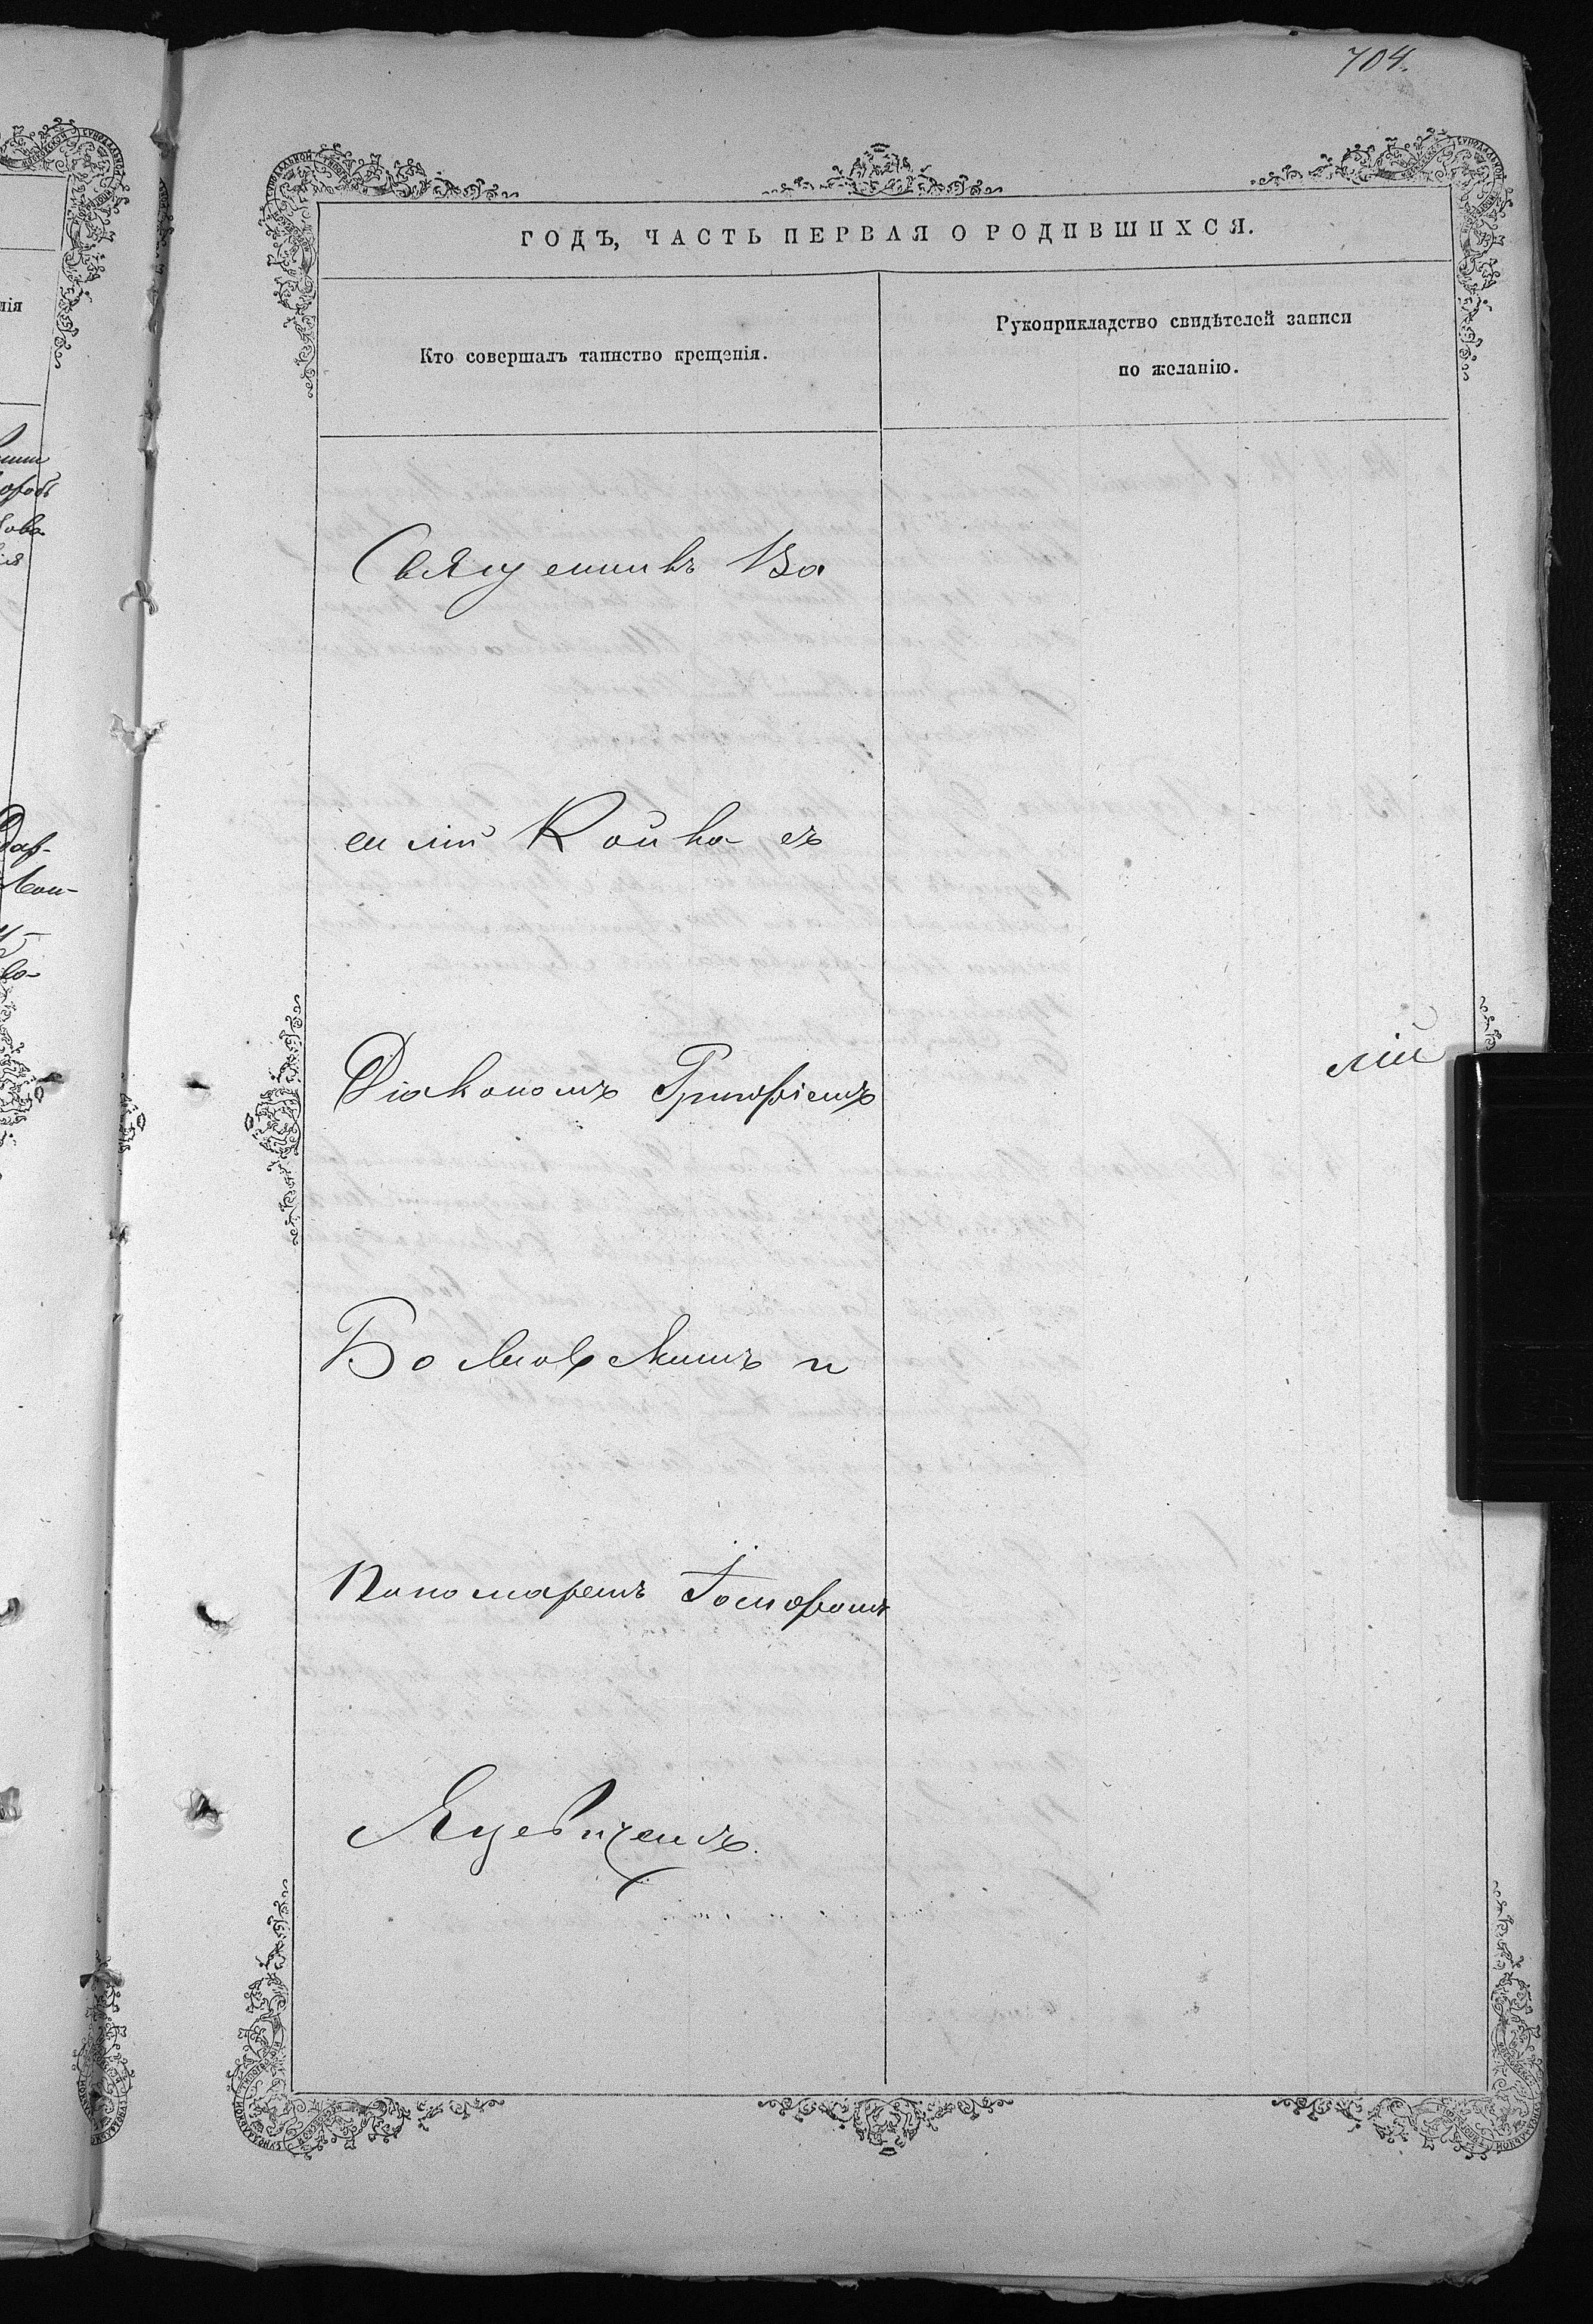 704.
ГОДЪ, ЧАСТЬ ПЕРВАЯ О РОДИВШИХСЯ.
Кто совершалъ таинство крещенія.
Рукоприкладство свидѣтелей записи
по желанію.
Священникъ Ва
силій Койко съ
Діакономъ Григоріемъ
лій
и
Пономаремъ Іосифомъ
Яцевичемъ.